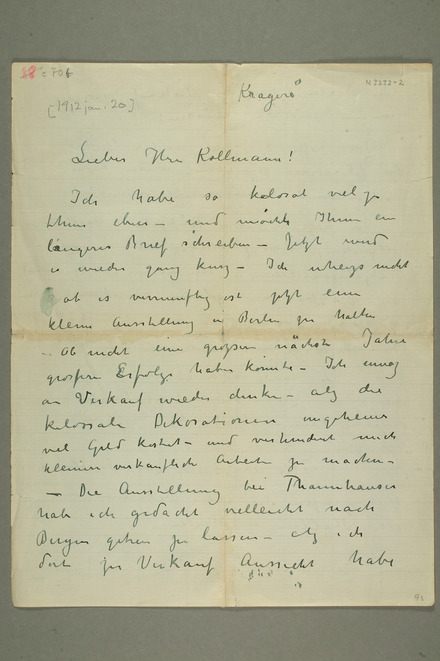 [1912 jan. 20]
N 3232-2
Kragerø
Lieber Herr Kollmann!
Ich habe so kolosal viel zu
thun eben – und möchte Ihnen ein
längeres Brief schreiben – Jetzt wird
es wieder ganz kurz – Ich weiss nicht
ob es vernunftig ist jetzt eine
kleine Ausstellung in Berlin zu halten
– Ob nicht eine grossere nächste Jahre
grossere Erfolge haben könnte – Ich
an Verkauf wieder denke – als die
kolossale Dekorationen ungeheuer
viel Geld kostet – und verhindert mich
kleinere verkäufliche Arbeiten zu machen –
– Die Ausstellung bei Thannhauser
habe ich gedacht vielleicht nach
Bergen gehen zu lassen – als ich
dort zu Verkauf Aussicht habe